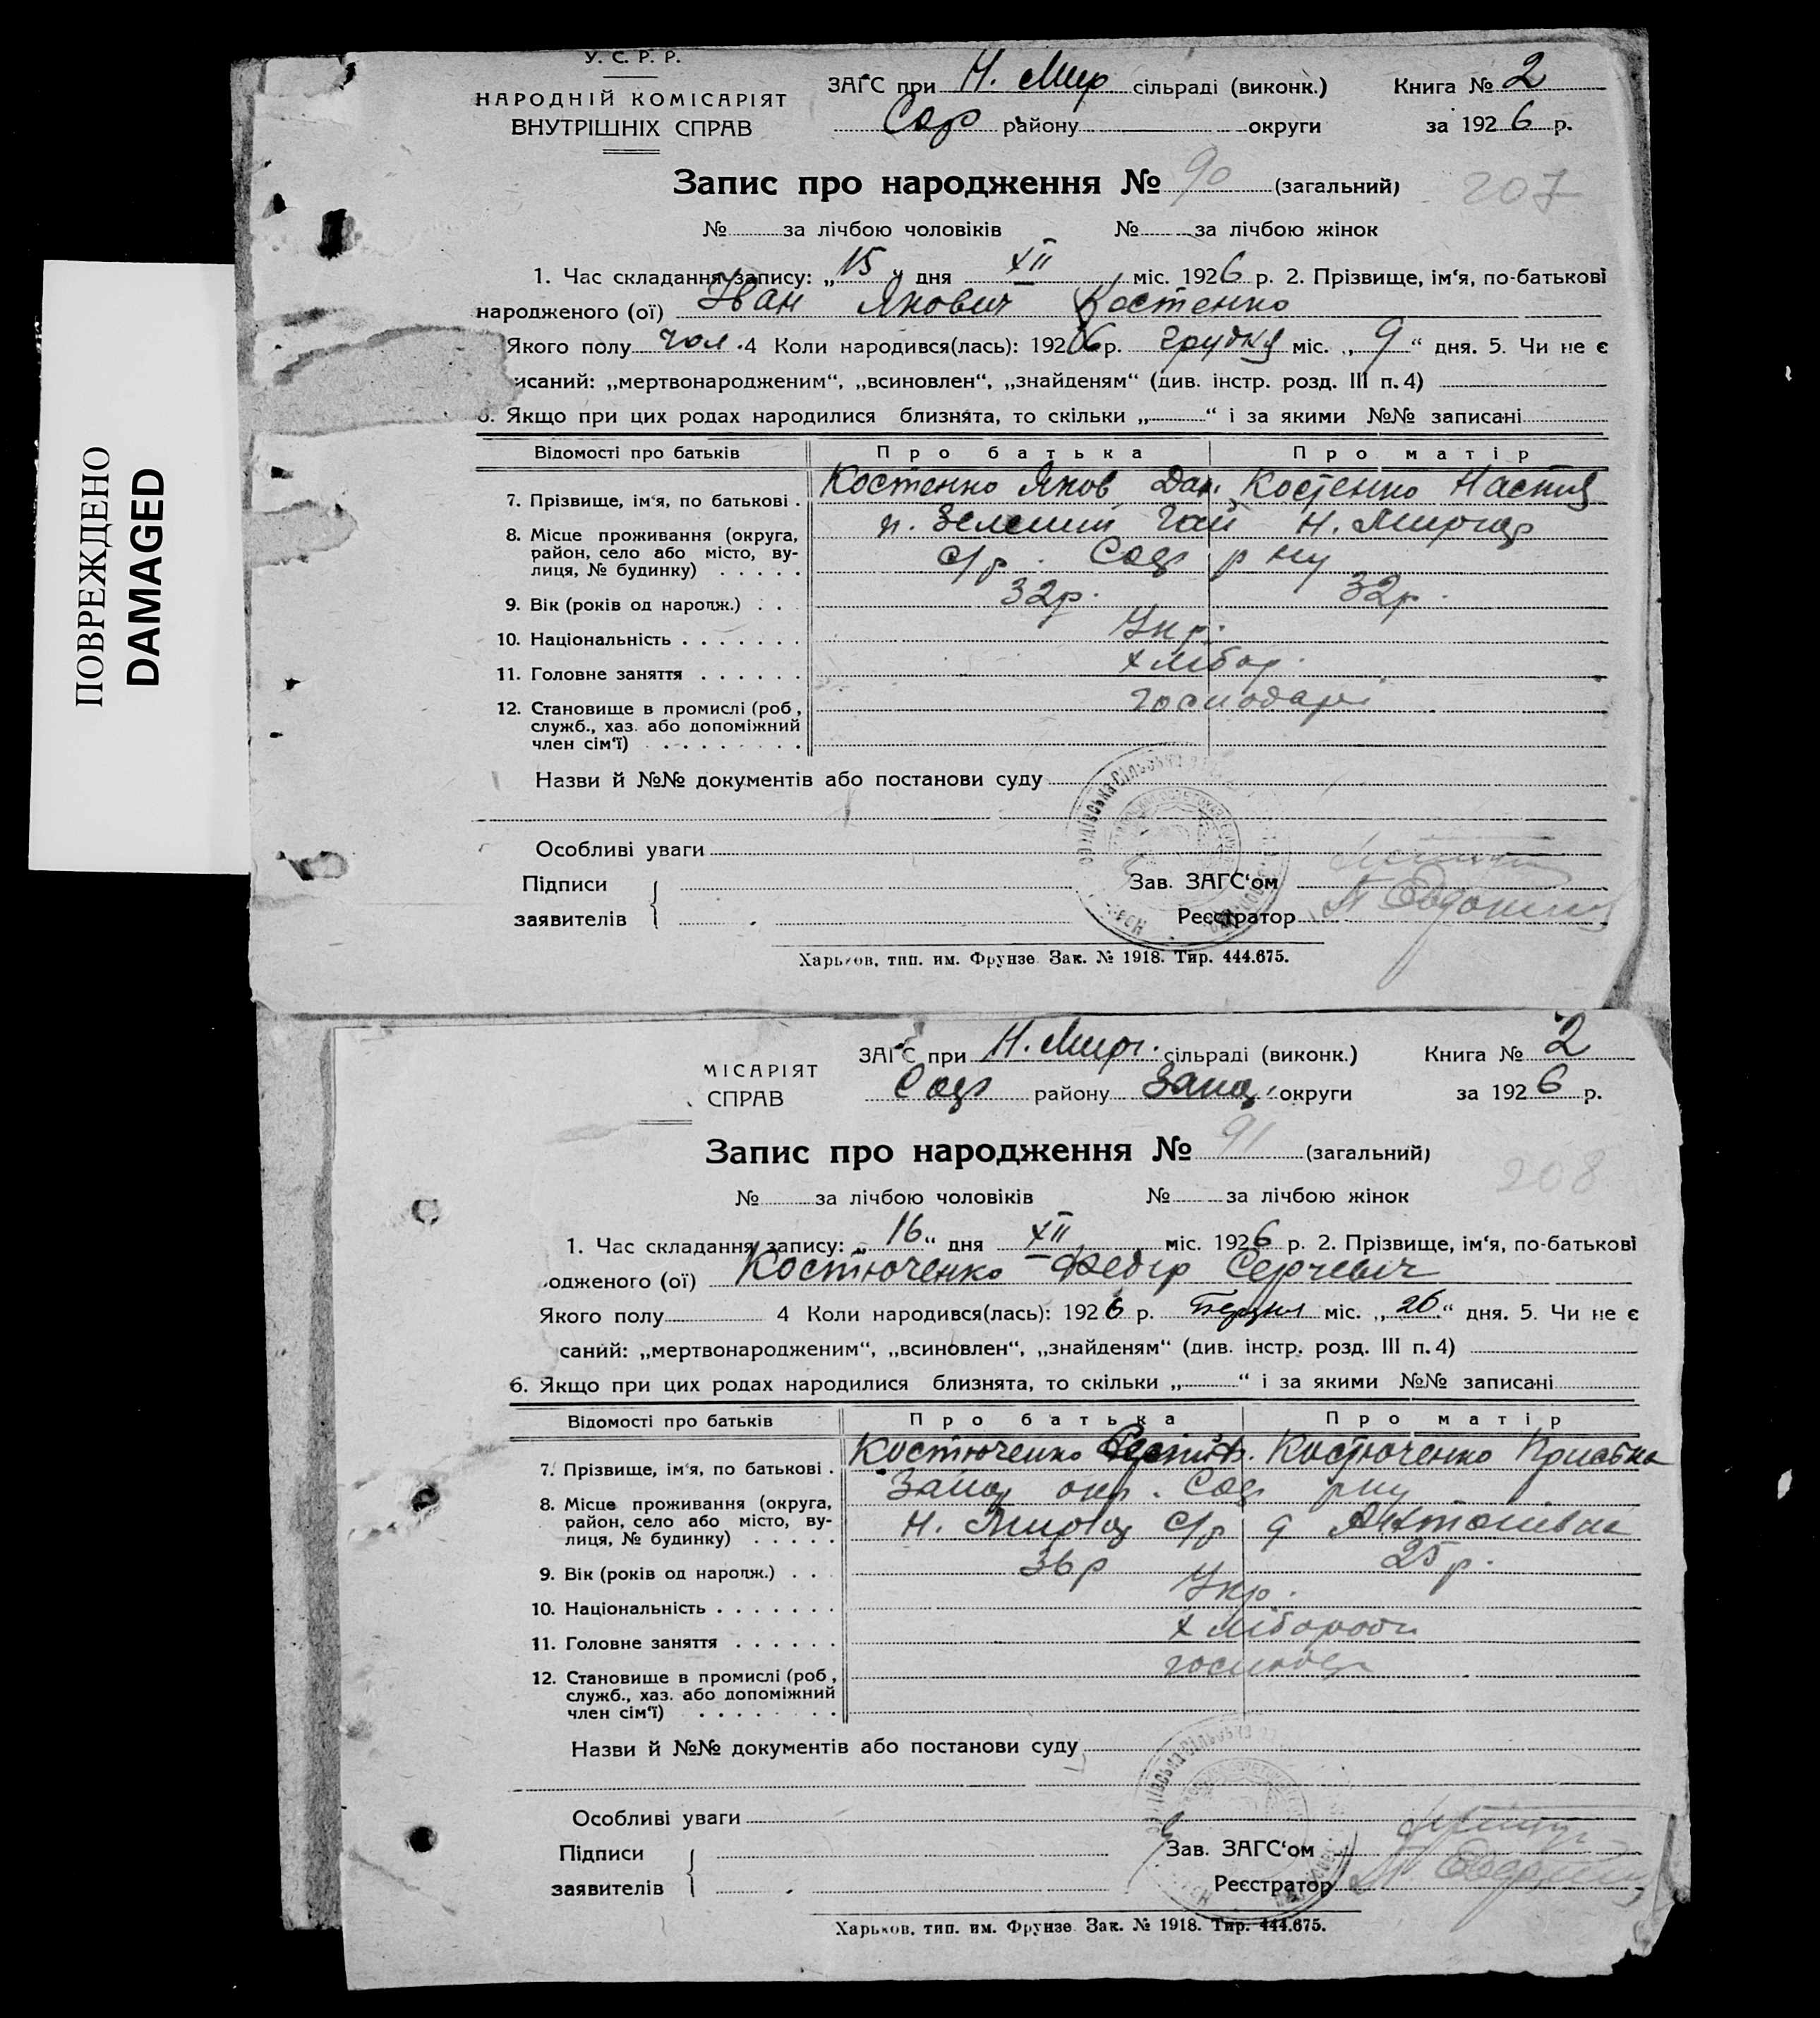 ПОВРЕЖДЕНО
DAMAGED
У. С. Р. Р.
НАРОДНІЙ КОМІСАРІЯТ
ВНУТРІШНІХ СПРАВ
ЗАГС при Н. Мир сільраді (виконк.) Книга № 2
району округи за 1926 р.
Запис про народження № 90 (загальний) 207
№ за лічбою чоловіків № за лічбою жінок
1. Час складання запису: „15“ дня XII міс. 1926 р. 2. Прізвище, ім‘я, по-батькові
народженого (ої) Іван Якович Костенко
Якого полу чол. 4 Коли народився(лась): 1926 р. грудня міс. „9“ дня. 5. Чи не є
исаний: „мертвонародженим“, „всиновлен“, „знайденям“ (див. інстр. розд. III п. 4)
6. Якщо при цих родах народилися близнята, то скільки „ “ і за якими №№ записані
Відомості про батьків Про батька Про матір
7. Прізвище, ім‘я, по батькові . Костенко Яков Дан. Костенко Настя
8. Місце проживання (округа, район, село або місто, вулиця, № будинку) . . . . . п. Зелений Гай Н. Миргор
с/р. р ну
9. Вік (років од народж.) . . . 32р. 32р.
10. Національність . . . . . . . Укр.
11. Головне заняття . . . . . . хлібор.
12. Становище в промислі (роб., служб., хаз. або допоміжний член сім‘ї) господарі
Назви й №№ документів або постанови суду
Особливі уваги
Підписи Зав. ЗАГС‘ом
заявителів Реєстратор
Харьков, тип. им. Фрунзе Зак. № 1918. Тир. 444.675.
МІСАРІЯТ
СПРАВ
ЗАГС при Н. Мирг. сільраді (виконк.) Книга № 2
району округи за 1926 р.
Запис про народження № 91 (загальний) 208
№ за лічбою чоловіків № за лічбою жінок
1. Час складання запису: „16“ дня XII міс. 1926 р. 2. Прізвище, ім‘я, по-батькові
одженого (ої) Костюченко Федір Сергеевіч
Якого полу 4 Коли народився(лась): 1926 р. міс. „26“ дня. 5. Чи не є
саний: „мертвонародженим“, „всиновлен“, „знайденям“ (див. інстр. розд. III п. 4)
6. Якщо при цих родах народилися близнята, то скільки „ “ і за якими №№ записані
Відомості про батьків Про батька Про матір
7. Прізвище, ім‘я, по батькові . Костюченко Костюченко
8. Місце проживання (округа, район, село або місто, вулиця, № будинку) . . . . . окр. рну
Н. с/р Антонівка
9. Вік (років од народж.) . . . 36р 25р.
10. Національність . . . . . . . Укр.
11. Головне заняття . . . . . . хлібороби
12. Становище в промислі (роб., служб., хаз. або допоміжний член сім‘ї) господ
Назви й №№ документів або постанови суду
Особливі уваги
Підписи Зав. ЗАГС‘ом
заявителів Реєстратор
Харьков, тип. им. Фрунзе Зак. № 1918. Тир. 444.675.